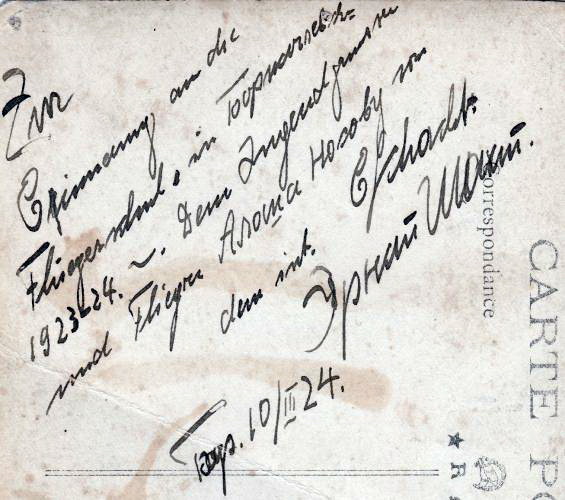 Zur
Erinnerung an die
Fliegerschule in Борисоглебск
1923-24. Dem Jugendgenossen
und Flieger Алоша Носову von
dem int. E/Schacht.
Эрнст Шахт.
10/III 24.
Correspondance
CARTE PO
★ R